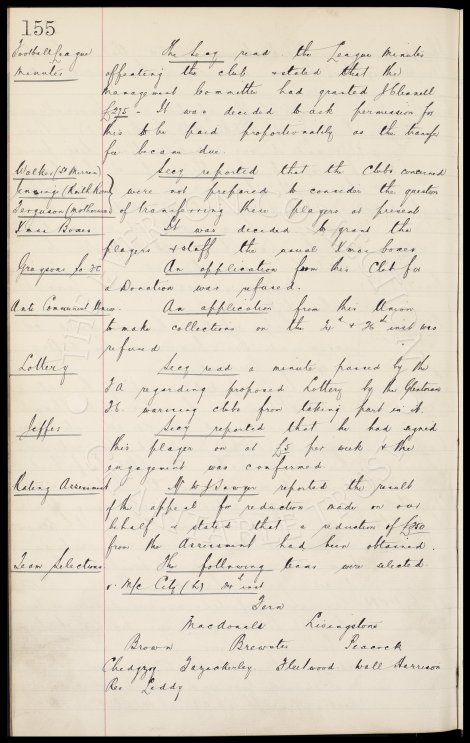 155
Football League The Secy read the League Minutes
Minutes affecting the club & stated that the
Management Committee had granted J Cleanell
£275 - It was decided to ask permission for
this to be paid proportionately as the transfer
fee became due.
Walker (St Mirren) Secy reported that the Clubs concerned
(Raith Rovers) were not prepared to consider the question
Ferguson (Motherwell) of transferring these players at present
Xmas Boxes It was decided to grant the
players & staff the usual Xmas boxes
Graysons Fc An application from this Club for
a Donation was refused.
Anti Communist Union. An application from this Union
to make collections on the & 26th inst was
refused
Lottery Secy read a minute passed by the
FA regarding proposed Lottery by the
FC. warning clubs from taking part in it.
Jeffes Secy reported that he had signed
this player on at £5 per week & the
engagement was confirmed.
Rating Assessment Mr W J Sawyer reported the result
of the appeal for reduction made on our
behalf & stated that a reduction of £250
from the Assessment had been obtained.
Team Selections The following teams were selected
v. M/c City (L) inst
Fern
Macdonald Livingstone
Brown Brewster Peacock
Chedgzoy Fazackerley Fleetwood Wall Harrison
Res Leddy